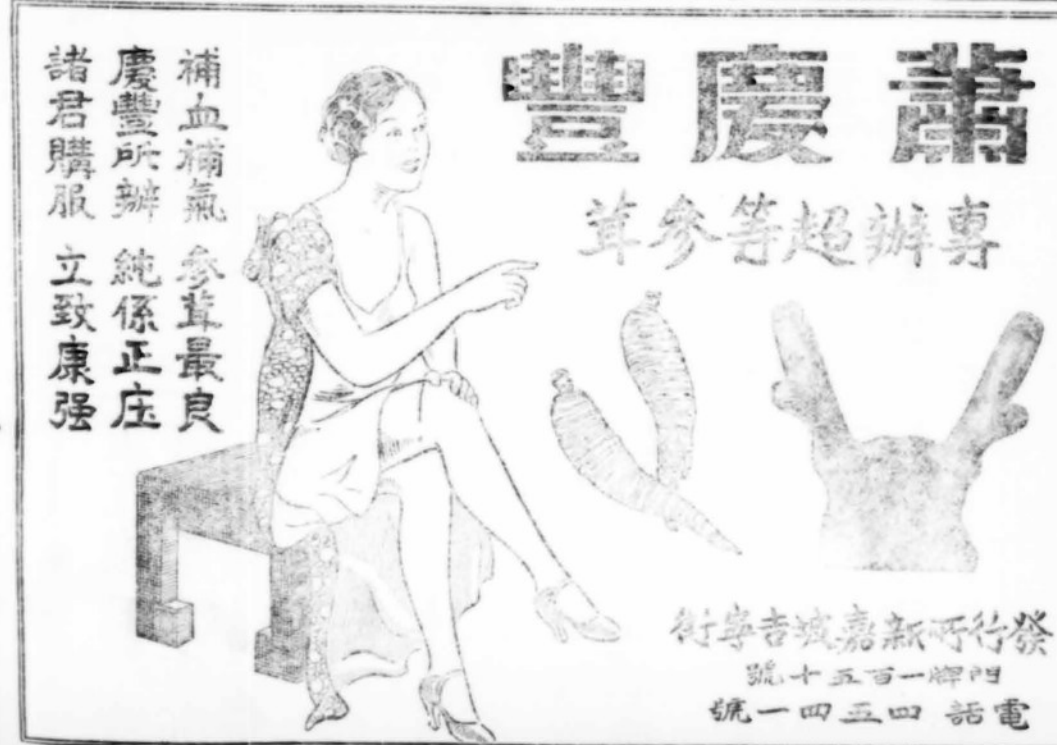 蕭慶豐
專辦超等參茸
補血補氣 參茸最良
慶豐所辦 純係正庄
諸君購服 立致康强
發行所新嘉坡吉寧街
門牌一百五十號
電話 四五四一號